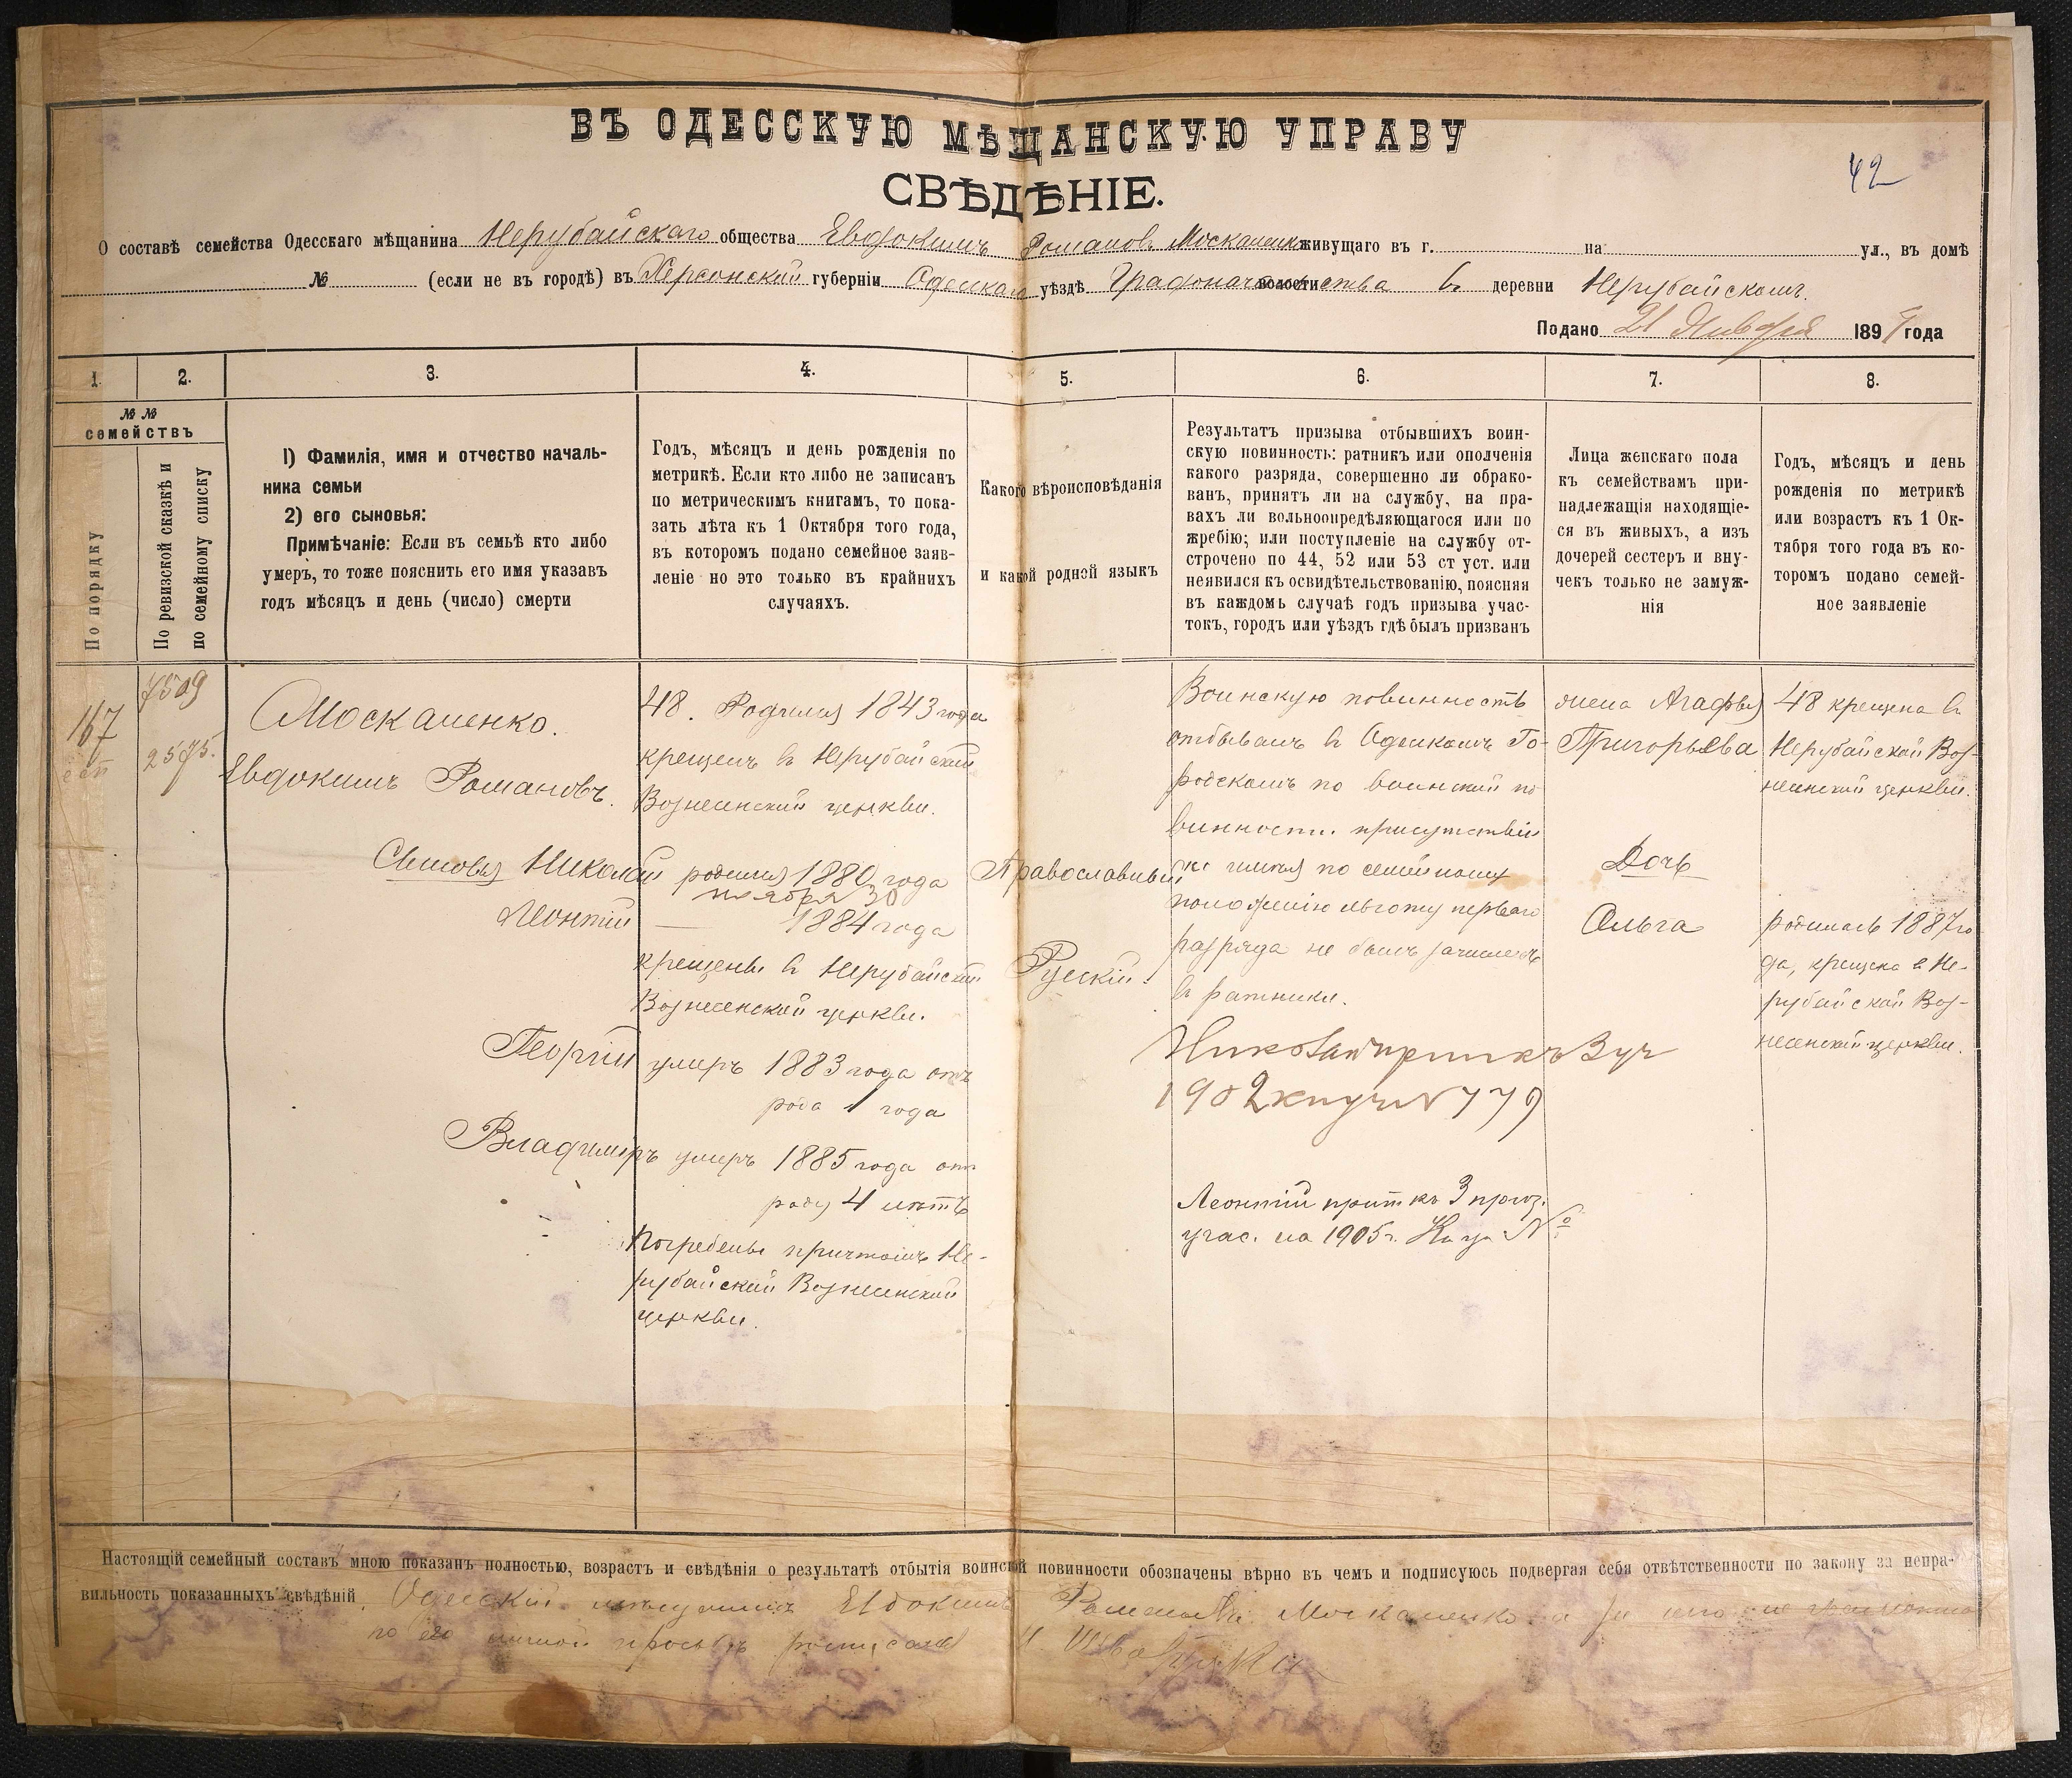 ВЪ ОДЕССКУЮ МѢЩАНСКУЮ УПРАВУ
42
СВѢДѢНІЕ.
О составѣ семейства Одесскаго мѣщанина Нерубайскаго общества Евдокимъ Романовъ Москаленко живущаго въ г. на ул., въ домѣ
№ (если не въ городѣ) въ Херсонской губерніи Одесскаго уѣздѣ Градоначальства волости въ деревни Нерубайскомъ.
Подано 21 Января 1891 года
1 2. 3. 4. 5. 6. 7. 8.
№ №
семействъ
По порядку
По ревизской сказкѣ и
по семейному списку
1) Фамилія, имя и отчество началь-
ника семьи
2) его сыновья:
Примѣчаніе: Если въ семьѣ кто либо
умеръ, то тоже пояснить его имя указавъ
годъ мѣсяцъ и день (число) смерти
Годъ, мѣсяцъ и день рожденія по
метрикѣ. Если кто либо не записанъ
по метрическимъ книгамъ, то пока-
зать лѣта къ 1 Октября того года,
въ которомъ подано семейное заяв-
леніе но это только въ крайнихъ
случаяхъ.
Какого вѣроисповѣданія
и какой родной языкъ
Результатъ призыва отбывшихъ воин-
скую повинность: ратникъ или ополченія
какого разряда, совершенно ли обрако-
ванъ, принятъ ли на службу, на пра-
вахъ ли вольноопредѣляющагося или по
жребію; или поступленіе на службу от-
строчено по 44, 52 или 53 ст уст. или
неявился къ освидѣтельствованію, поясняя
въ каждомъ случаѣ годъ призыва учас-
токъ, городъ или уѣздъ гдѣ былъ призванъ
Лица женскаго пола
къ семействамъ при-
надлежащія находящіе-
ся въ живыхъ, а изъ
дочерей сестеръ и вну-
чекъ только не замуж-
нія
Годъ, мѣсяцъ и день
рожденія по метрикѣ
или возрастъ къ 1 Ок-
тября того года въ ко-
торомъ подано семей-
ное заявленіе
167
7509
2575.
Москаленко.
Евдокимъ Романовъ.
Сыновья Николай
Леонтій
Георгій
Владиміръ
48. Родился 1843 года
крещенъ въ Нерубайской
Вознесенской церкви.
родился 1880 года
ноября 30
— 1884 года
крещены въ Нерубайской
Вознесенской церкви.
умеръ 1883 года отъ
рода 1 года
умеръ 1885 года отъ
роду 4 лѣтъ
Погребены причтомъ Не-
рубайской Вознесенской
церкви.
Православный
Русскій.
Воинскую повинность
отбывалъ въ Одесскомъ Го-
родскомъ по воинской по
винности присутствіи
по семейному
положенію льготу перваго
разряда не былъ зачисленъ
въ ратники.
Николай
1902 № 779
Леонтій къ 3 приз.
учас. на 1905 г. №
жена Агафья
Григорьева
Дочь
Ольга
48 крещена въ
Нерубайской Воз-
несенской церкви.
родилась 1887 го
да, крещена в Не-
рубайской Воз-
несенской церкви.
Настоящій семейный составъ мною показанъ полностью, возрастъ и свѣдѣнія о результатѣ отбытія воинской повинности обозначены вѣрно въ чемъ и подписуюсь подвергая себя отвѣтственности по закону за непра-
вильность показанныхъ свѣдѣній. Одесскій мѣщанинъ Евдокимъ Романовъ Москаленко а за него не грамотнаго
по его личной просьбѣ росписался